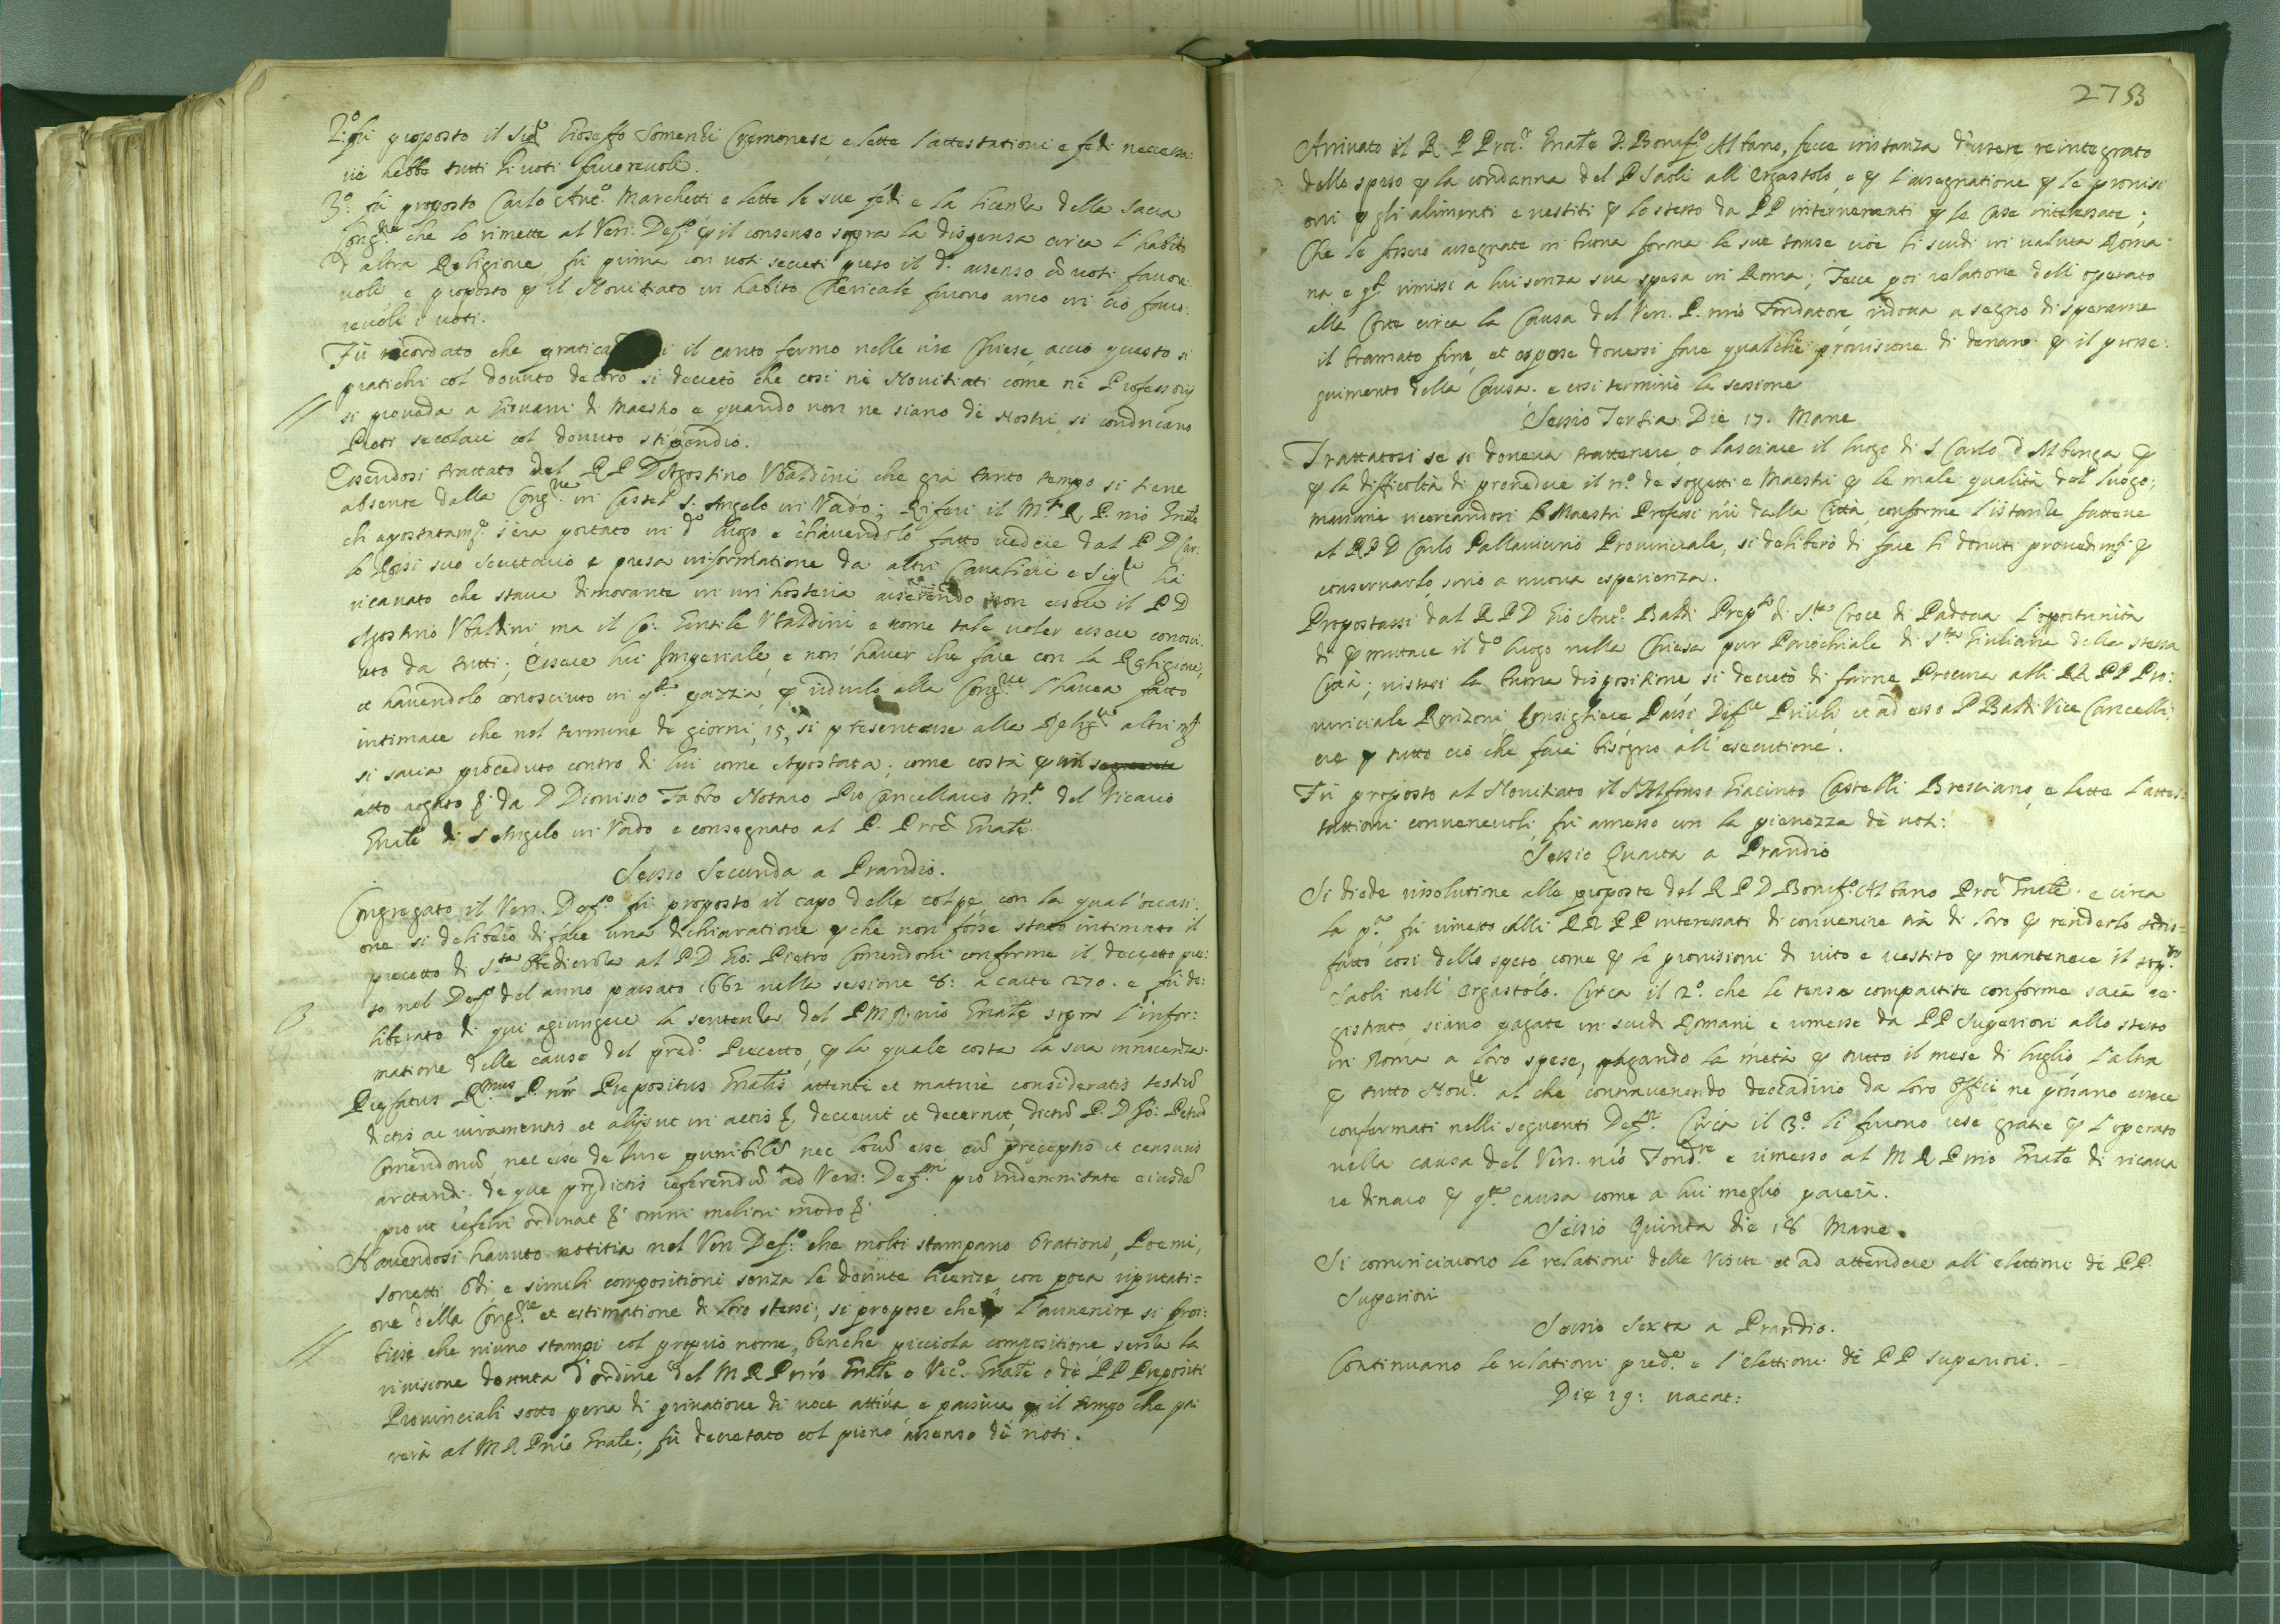 2.º fù proposto il Sig.r Gioseffo Somenzi Cremonese e lette l'attestationi e fedi necessa:
rie hebbe tutti li voti favorevoli.
3.º fù proposto Carlo Ant.º Marchetti e lette le sue fedi e la licenza della Sacra
Cong.ne che lo rimette al Ven. Def.º ꝑ il consenso sopra la dispensa circa l'habito
d'altra Religione fù prima con voti secreti preso il d.º assenso cõ voti favore
voli e proposto ꝑ il Novitiato in habito Chericale furono anco in ciò favo:
revoli i voti.
Fù ricordato che il canto fermo nelle nr̃e Chiese, acciò questo si
pratichi col dovuto decoro si decretò che così nè Novitiati come nè Professorij
si proveda a Giovani di Maestro e quando non ne siano dè Nostri, si conduchano
Preti secolari col dovuto stipendio.
Essendosi trattato del R P D Agostino Ubaldini che già tanto tempo si tiene
absente dalla Cong.ne in Castel S. Angelo in Vado; Riferì il M.to R P. nr̃o Gnale
ch'apostatam.te s'era portato in d.º luogo e ch'havendolo fatto vedere dal P D Car:
lo Rossi suo Secretario e presa informatione da altri Cavalieri e Sig.ri hà
ricavato che stava dimorante in un hosteria asserendo non essere il P D
Agostino Ubaldini, ma il Co. Gentile Ubaldini e come tale voler essere conosci
uto da tutti; Essere lui Imperiale, e non haver che fare con la Religione,
et havendolo conosciuto in q.ta pazzia, ꝑ ridurlo alla Cong.ne l'havea fatto
intimare che nel termine de giorni, 15, si presentasse alla Relig.ne altrim.ti
si saria proceduto contro di lui come Apostata; come costa ꝑ un
atto rogato da D Dionisio Fabro Notaro Pro Cancellario M.to del Vicario
Gnãle di S Angelo in Vado e consegnato al P. Proc.r Gnãle.
Sessio Secunda a Prandio.
Congregato il Ven. Def.º fù proposto il capo delle colpe con la qual'occasi:
one si deliberò di fare una dichiaratione ꝑche non fosse stato intimato il
precetto di S.ta Obedienza al P D Gio: Pietro Comendoni conforme il decreto pre:
so nel Def.º del anno passato 1662 nella sessione 8: a carte 270. e fù de:
liberato di qui agiungere la sentenza del P M R nr̃o Gnãle sopra l'infor:
matione delle cause del pred.º Precetto, ꝑ la quale costa la sua innocenza.
Prefatus R.mus P. nr̃ Prepositus Gnãlis attente et mature consideratis testiũ
dictis ac iuramentis et alijs ut in actis &. decrevit et decernit, dictũ P. D Jo: Petrũ
Comendonũ, nec esse de iure punibilẽ nec locũ esse eũ preceptis et censuris
arctandi: de que predictis referendũ ad Ven: Def.m pro indemnitate eiusdẽ
pro ut referri ordinat & omni meliori modo &.
Havendosi havuto notitia nel Ven Def.º che molti stampano Orationi, Poemi,
Sonetti Odi e simili compositioni senza le dovute licenze con poca riputati=
one della Cong.ne et estimatione di loro stessi; si propose che ꝑ l'avvenire si proi:
bisse che niuno stampi col proprio nome, benche picciola compositione senza la
revisione dovuta d'ordine del M R P nr̃o Gnãle o Vic.º Gnãle o dè PP Prepositi
Provinciali sotto pena di privatione di voce attiva, e passiva ꝑ il tempo che pa:
rerà al M R P nr̃o Gnãle; fù decretato col pieno assenso dè voti.
2753
Arrivato il R P Proc.r Gnãle D. Bonif.º Albano, fece instanza d'essere reintegrato
delle spese ꝑ la condanna del P Saoli all'ergastolo, e ꝑ l'assegnatione ꝑ le provisi
oni ꝑ gli alimenti e vestiti ꝑ lo stesso da PP intervenienti ꝑ le Case interessate;
Che le fossero assegnate in buona forma le sue tanse cioè li scudi in valuta Roma
na e q.ti rimessi a lui senza sua spesa in Roma; Fece poi relatione dell'operato
alla Corte circa la Causa del Ven. P. nr̃o Fondatore ridotta a segno di sperarne
il bramato fine, et espose doversi fare qualche provisione di denaro ꝑ il prose:
guimento della Causa; e così terminò la sessione
Sessio Tertia Die 17. Mane
Trattatosi se si doveva trattenere, o lasciare il luogo di S Carlo d'Albenga ꝑ
ꝑ la difficoltà di provedere il n.º de soggetti e Maestri ꝑ le male qualità del luogo;
massime ricercandosi Maestri Professi nr̃i dalla Città, conforme l'istanze fattene
al R P D Carlo Pallavicino Provinciale, si deliberò di fare li dovuti provedim.ti ꝑ
conservarlo, sino a nuova esperienza.
Propostassi dal R P D Gio Ant.º Baldi Prep.to di S.ta Croce di Padova l'opportunità
di ꝑmutare il d.º luogo nella Chiesa pur Parochiale di S.ta Giuliana della stessa
Città; vistasi la buona dispositione si decretò di farne Procura alli RR PP Pro:
vinciale Ronzoni, Consigliere Parisi Def.re Priuli et ad esso P Baldi Vice Cancelli:
ere ꝑ tutto ciò che farà bisogno all'esecutione.
Fù proposto al Novitiato il S Alfonso Giacinto Castelli Bresciano, e lette l'attes:
tationi convenevoli, fù amesso con la pienezza dè voti:
Sessio Quarta a Prandio
Si diede risolutione alle proposte del R P D Bonif.º Albano Proc.r Gnãle. e circa
la p.ª fù rimesso alli RR PP interessati di convenire trà di loro ꝑ renderlo sodis=
fatto così delle spese come ꝑ le provisioni di vito e vestito ꝑ mantenere il sop.to
Saoli nell'ergastolo. Circa il 2.º che le tense compartite conforme sarà re:
gistrato siano pagate in scudi Romani e rimesse da PP Superiori allo stesso
in Roma a loro spese, pagando la metà ꝑ tutto il mese di luglio l'altra
ꝑ tutto Nov.re al che contravenendo decadino da loro Officii ne possano essere
confermati nelli seguenti Def.ri. Circa il 3.º li furono rese gratie ꝑ l'operato
nella causa del Ven. nr̃o Fond.re e rimesso al M R P nr̃o Gnãle di ricava
re dinaro ꝑ q.ta causa come a lui meglio parerà.
Sessio Quinta die 18 Mane.
Si cominciarono le relationi delle Visite et ad attendere all'elettioni de PP.
Superiori
Sessio Sexta a Prandio.
Continuano le relationi pred.e e l'elettioni dè PP superiori.
Die 19: vacat: